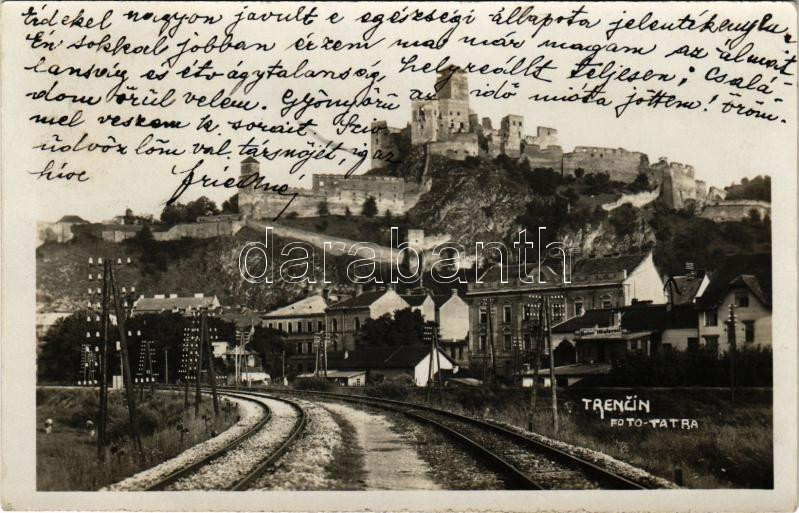 Érdekel nagyon javult e egészségi állapota jelentékenyen.
Én sokkal jobban érzem ma már magam az álmat-
lanság és étvágytalanság, helyreállt teljesen; Csalá-
dom örül velem. Gyönyörű az idő mióta jöttem! öröm-
mel veszem k. sorait
üdvözlöm val. társnőjét, igaz
híve
darabanth
TRENČÍN
FOTO-TATRA